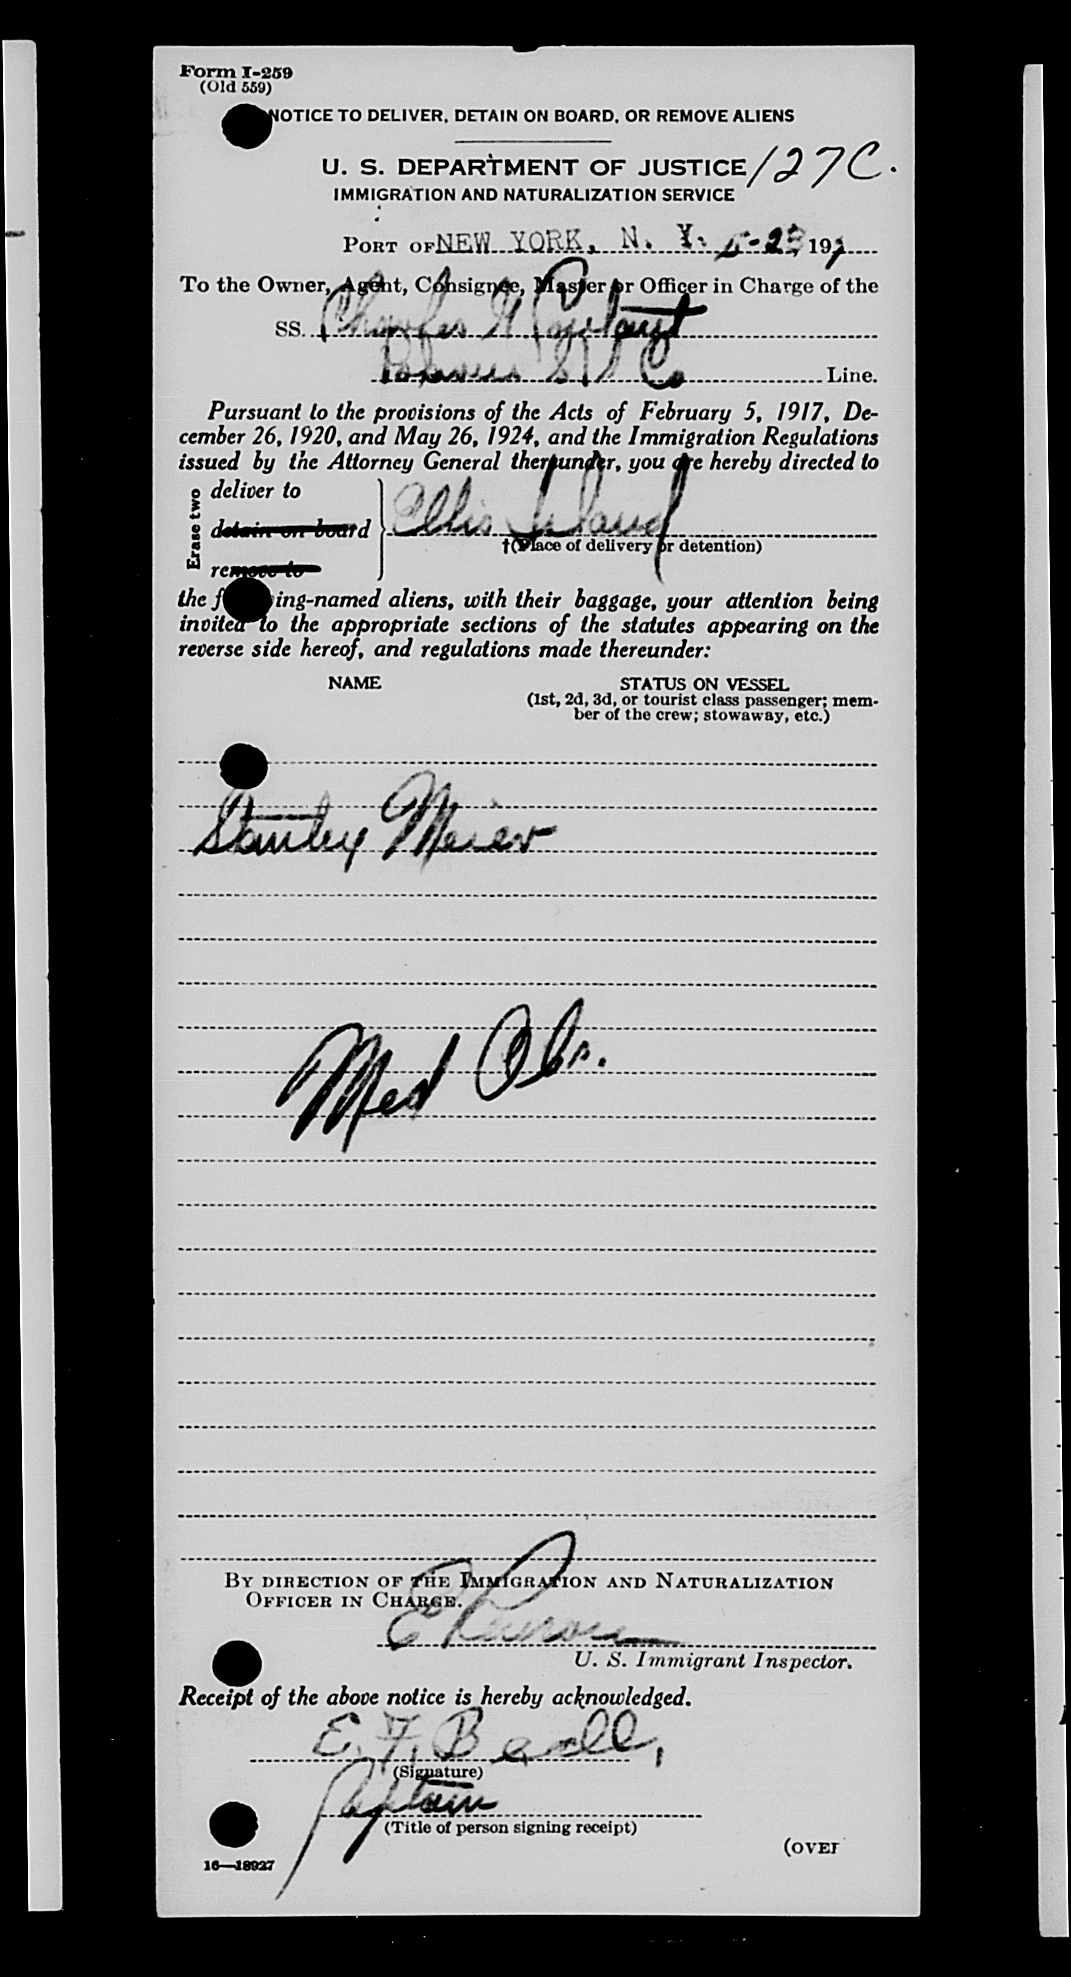 Form I-259
(Old 559)
NOTICE TO DELIVER, DETAIN ON BOARD, OR REMOVE ALIENS
U. S. DEPARTMENT OF JUSTICE 127C.
IMMIGRATION AND NATURALIZATION SERVICE
PORT OF NEW YORK, N. Y. 5-23, 19
To the Owner, Agent, Consignee, Master or Officer in Charge of the
SS. Charles
S/S Co Line.
Pursuant to the provisions of the Acts of February 5, 1917, De-
cember 26, 1920, and May 26, 1924, and the Immigration Regulations
issued by the Attorney General thereunder, you are hereby directed to
Erase two
deliver to
detain on board
remove to
Ellis Island
†(Place of delivery or detention)
the f ing-named aliens, with their baggage, your attention being
invited to the appropriate sections of the statutes appearing on the
reverse side hereof, and regulations made thereunder:
NAME STATUS ON VESSEL
(1st, 2d, 3d, or tourist class passenger; mem-
ber of the crew; stowaway, etc.)
Stanley Meier
Med Obs.
BY DIRECTION OF THE IMMIGRATION AND NATURALIZATION
OFFICER IN CHARGE.
E
U. S. Immigrant Inspector.
Receipt of the above notice is hereby acknowledged.
E. F. Beall,
(Signature)
Captain
(Title of person signing receipt)
(OVER
16—18927